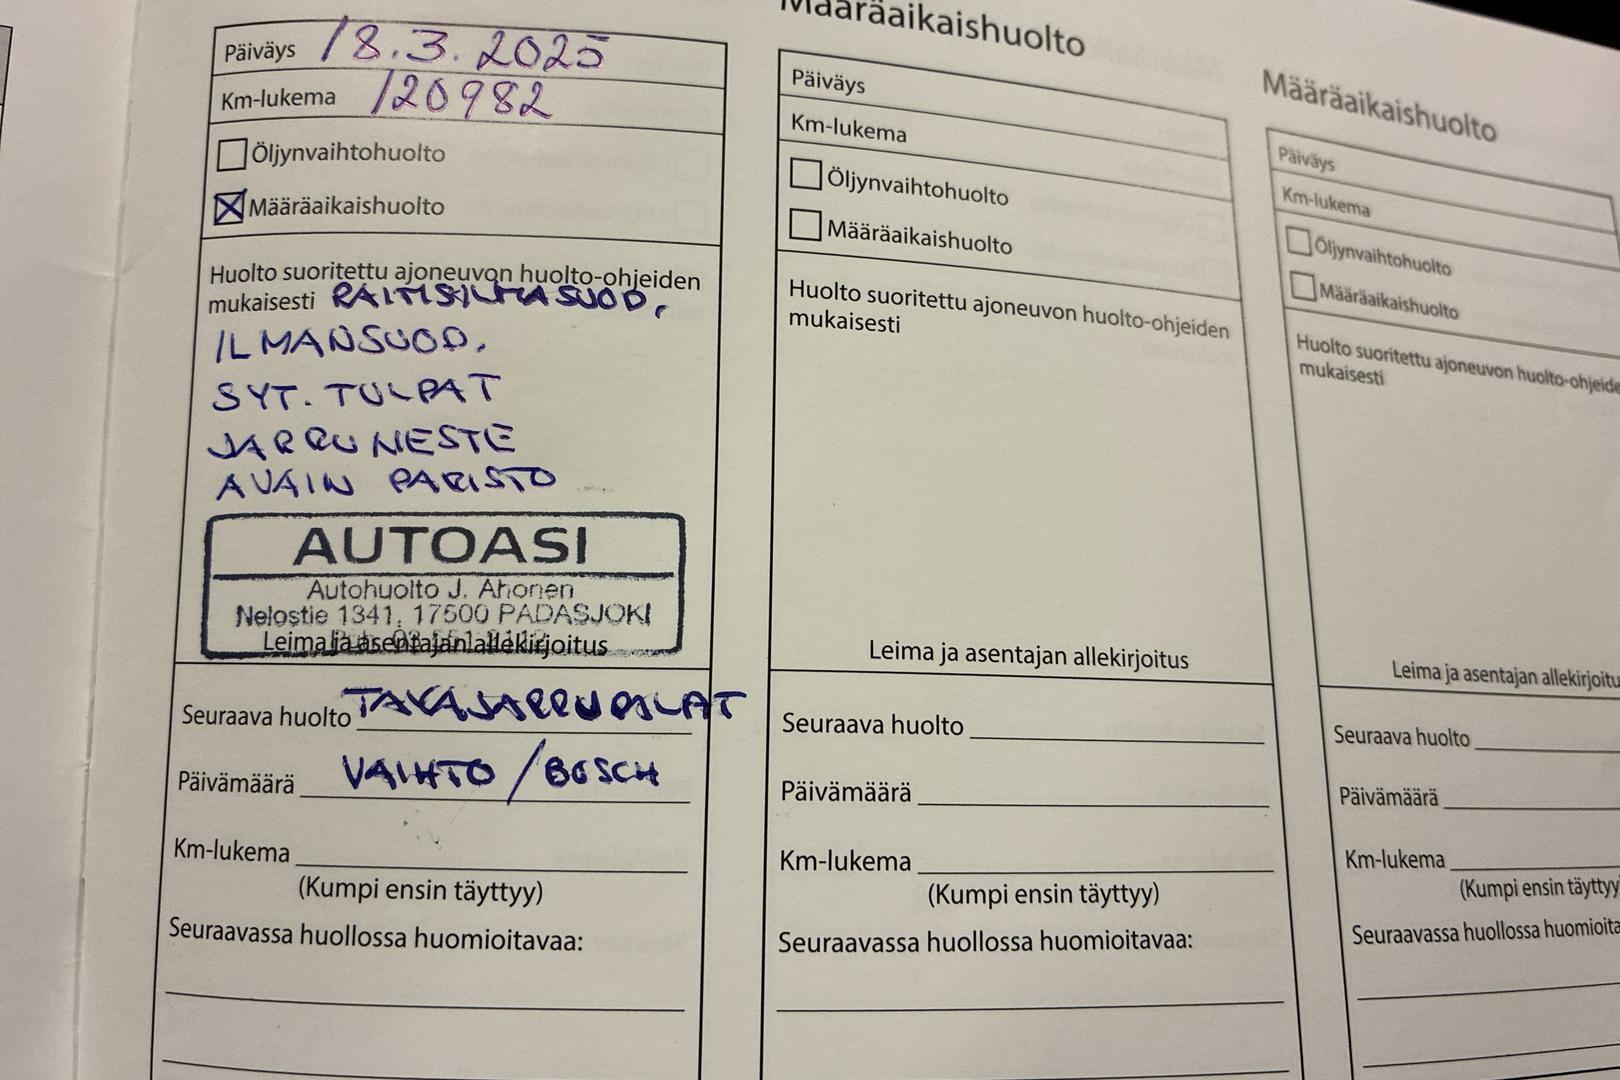 Päiväys 18.3.2025
Km-lukema 120982
Öljynvaihtohuolto
Määräaikaishuolto
Huolto suoritettu ajoneuvon huolto-ohjeiden
mukaisesti RAITISILMASUOD,
ILMANSUOD,
SYT. TULPAT
JARRUNESTE
AVAIN PARISTO
AUTOASI
Autohuolto J. Ahonen
Nelostie 1341, 17500 PADASJOKI
Leima ja asentajan allekirjoitus
Seuraava huolto TAKAJARRUPALAT
Päivämäärä VAIHTO / BOSCH
Km-lukema
(Kumpi ensin täyttyy)
Seuraavassa huollossa huomioitavaa:
Määräaikaishuolto
Päiväys
Km-lukema
Öljynvaihtohuolto
Määräaikaishuolto
Huolto suoritettu ajoneuvon huolto-ohjeiden
mukaisesti
Leima ja asentajan allekirjoitus
Seuraava huolto
Päivämäärä
Km-lukema
(Kumpi ensin täyttyy)
Seuraavassa huollossa huomioitavaa:
Määräaikaishuolto
Päiväys
Km-lukema
Öljynvaihtohuolto
Määräaikaishuolto
Huolto suoritettu ajoneuvon huolto-ohjeide
mukaisesti
Leima ja asentajan allekirjoitu
Seuraava huolto
Päivämäärä
Km-lukema
(Kumpi ensin täyttyy
Seuraavassa huollossa huomioita